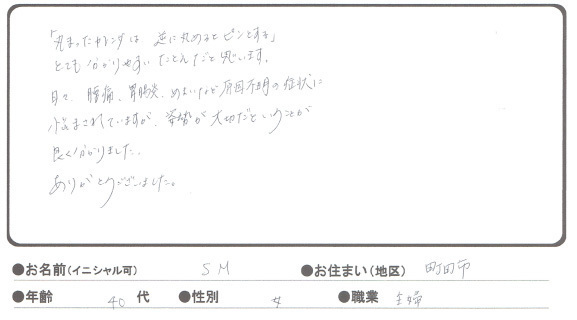 「丸まったカレンダは 逆に丸めるとピンとする」
とても分かりやすいたとえだと思います。
日々、腰痛、胃腸炎、めまいなど原因不明の症状に
悩まされていますが、姿勢が大切だということが
良く分かりました。
ありがとうございました。
●お名前(イニシャル可) SM ●お住まい(地区) 町田市
●年齢 40 代 ●性別 女 ●職業 主婦